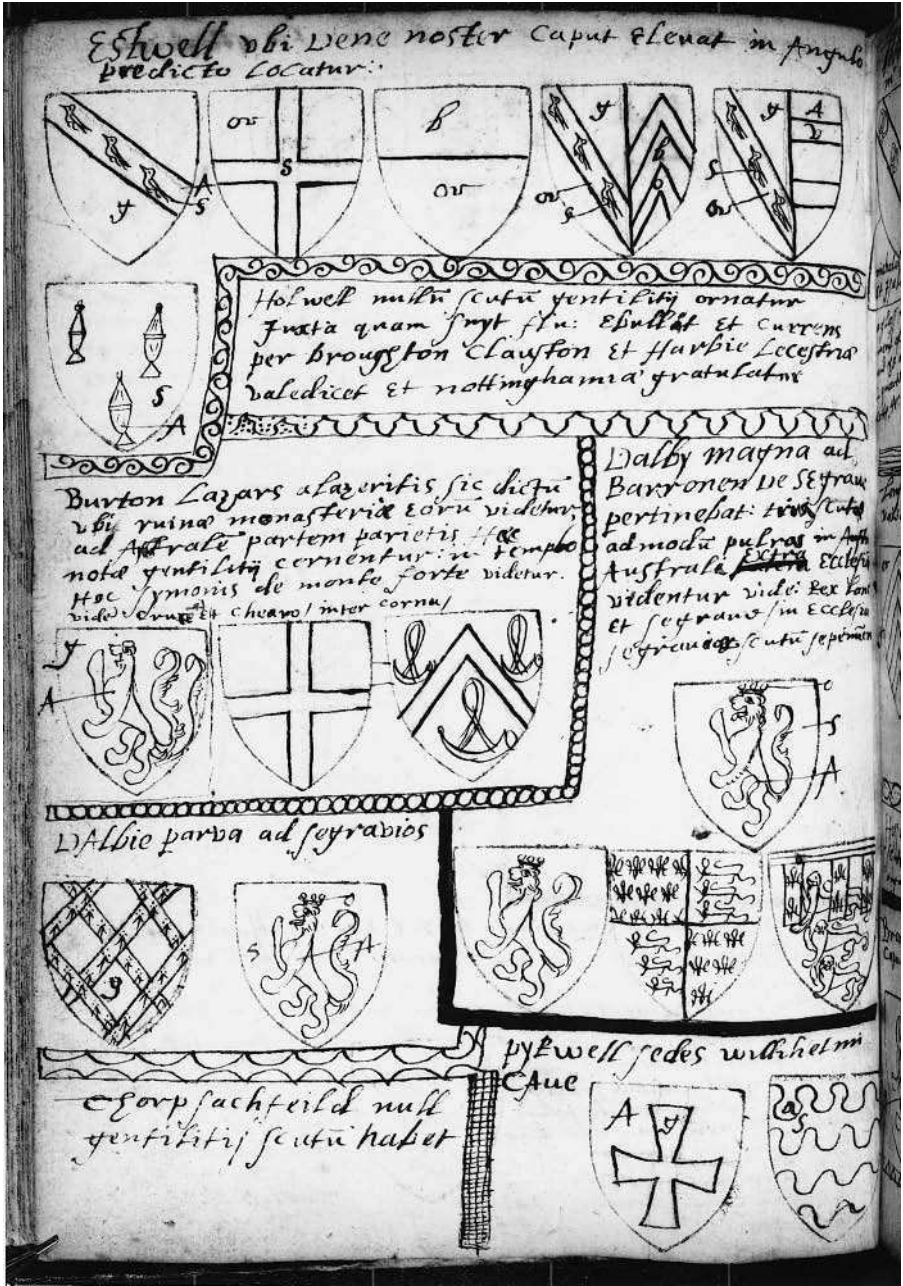 Estwell vbi Vene noster Caput Elevat in Angulo
predicto Locatur:
A
s
g
or
s
b
or
g
b
o
or
s
g
A
V
s
or
s
A
Holwell nullũ scutũ gentilitij ornatur
Juxta quam snyt flu: Ebullit et Currens
per Broughton Clauston et Harbie Lecestriæ
valedicet et nottinghamiæ gratulator
Burton Lazars a lazeritis sic dictũ
vbi ruinæ monasteriæ eorũ videtur,
ad partem parietis Hæc
notæ gentilitij cernentur: in templo
Hoc symonis de monte forte videtur.
vide et Chearo / inter corna /
g
A
Dalby magna ad
Barronen De Segrave
pertinebat: scuta
admodũ pulras in
Australi Extra Ecclesiæ
videntur vide: Rex
et segrave / in Ecclesia
scutũ
o
s
A
DAlbie parva ad segravios
g
o
s
A
A
Thorpsachfeild null
gentilitij scutũ habet
pykwell sedes willihelmi
CAue
A
g
a
s